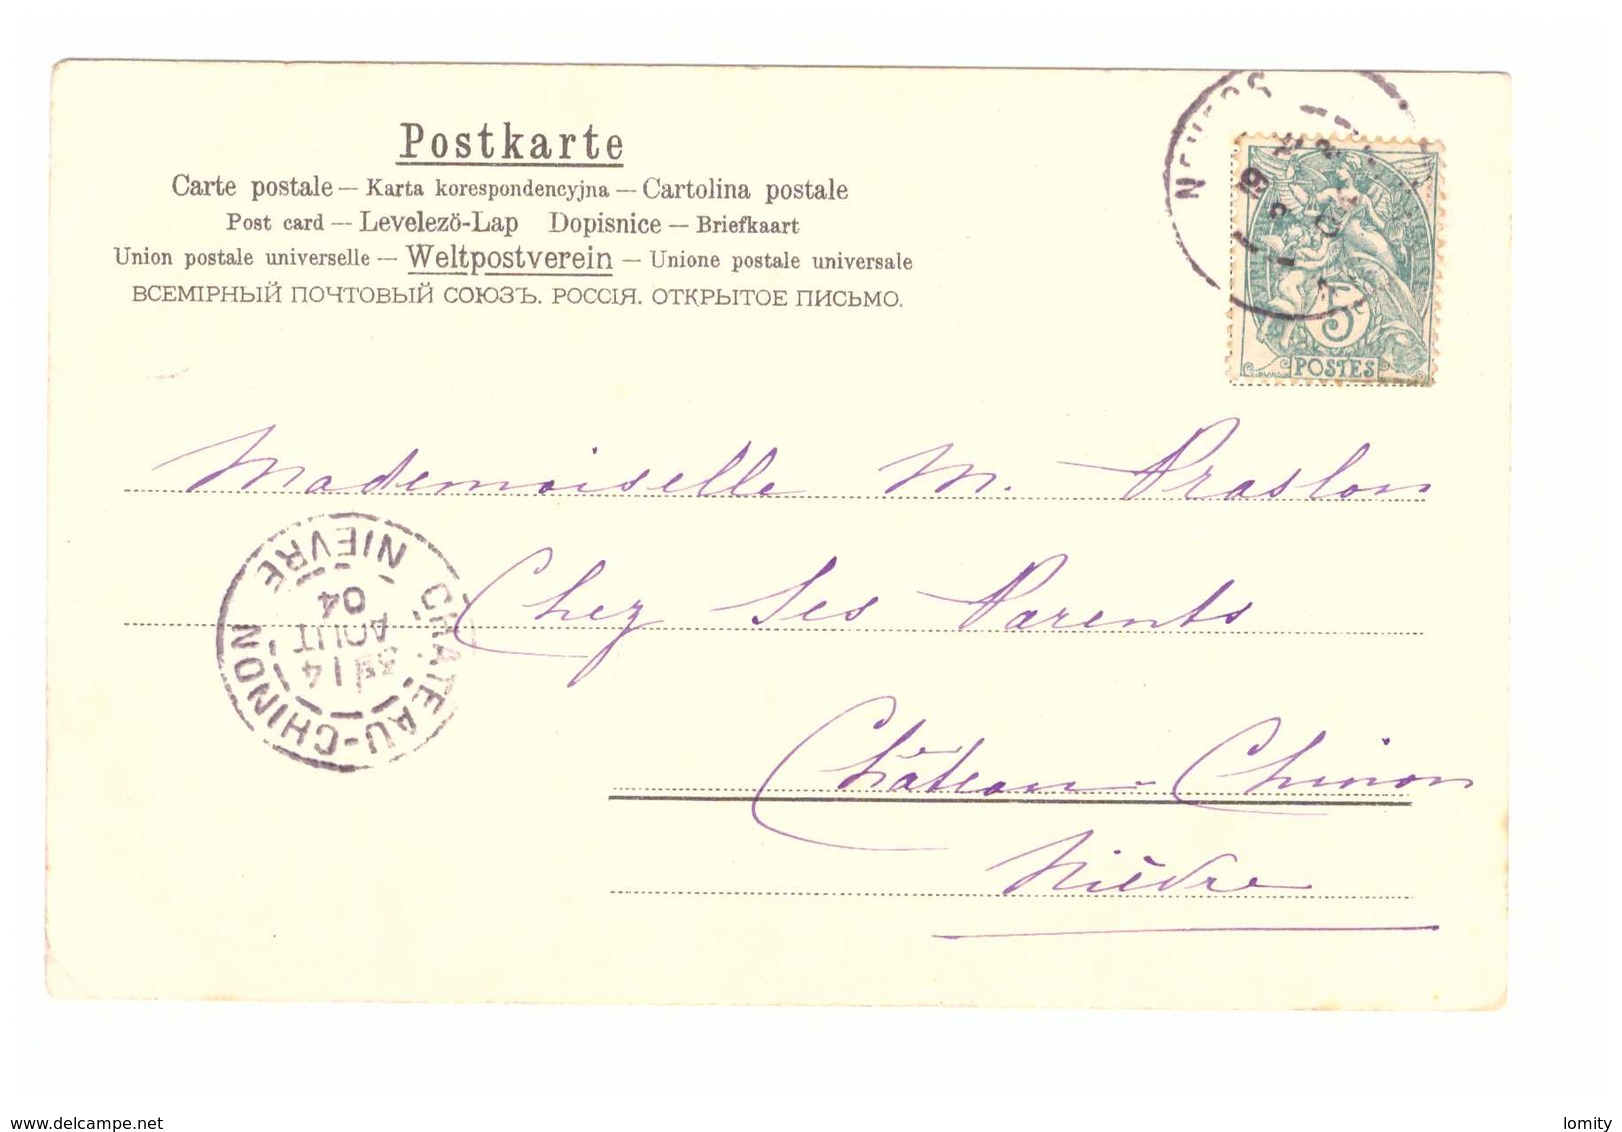 Postkarte
Carte postale — Karta korespondencyjna — Cartolina postale
Post card — Levelezö-Lap Dopisnice — Briefkaart
Union postale universelle — Weltpostverein — Unione postale universale
ВСЕМІРНЫЙ ПОЧТОВЫЙ СОЮЗЪ. РОССІЯ. ОТКРЫТОЕ ПИСЬМО.
NEVERS
5c
POSTES
Mademoiselle M. Praslon
Chez Ses Parents
Château-Chinon
Nièvre
CHATEAU-CHINON
NIÈVRE
14
AOUT
04
www.delcampe.net
lomity